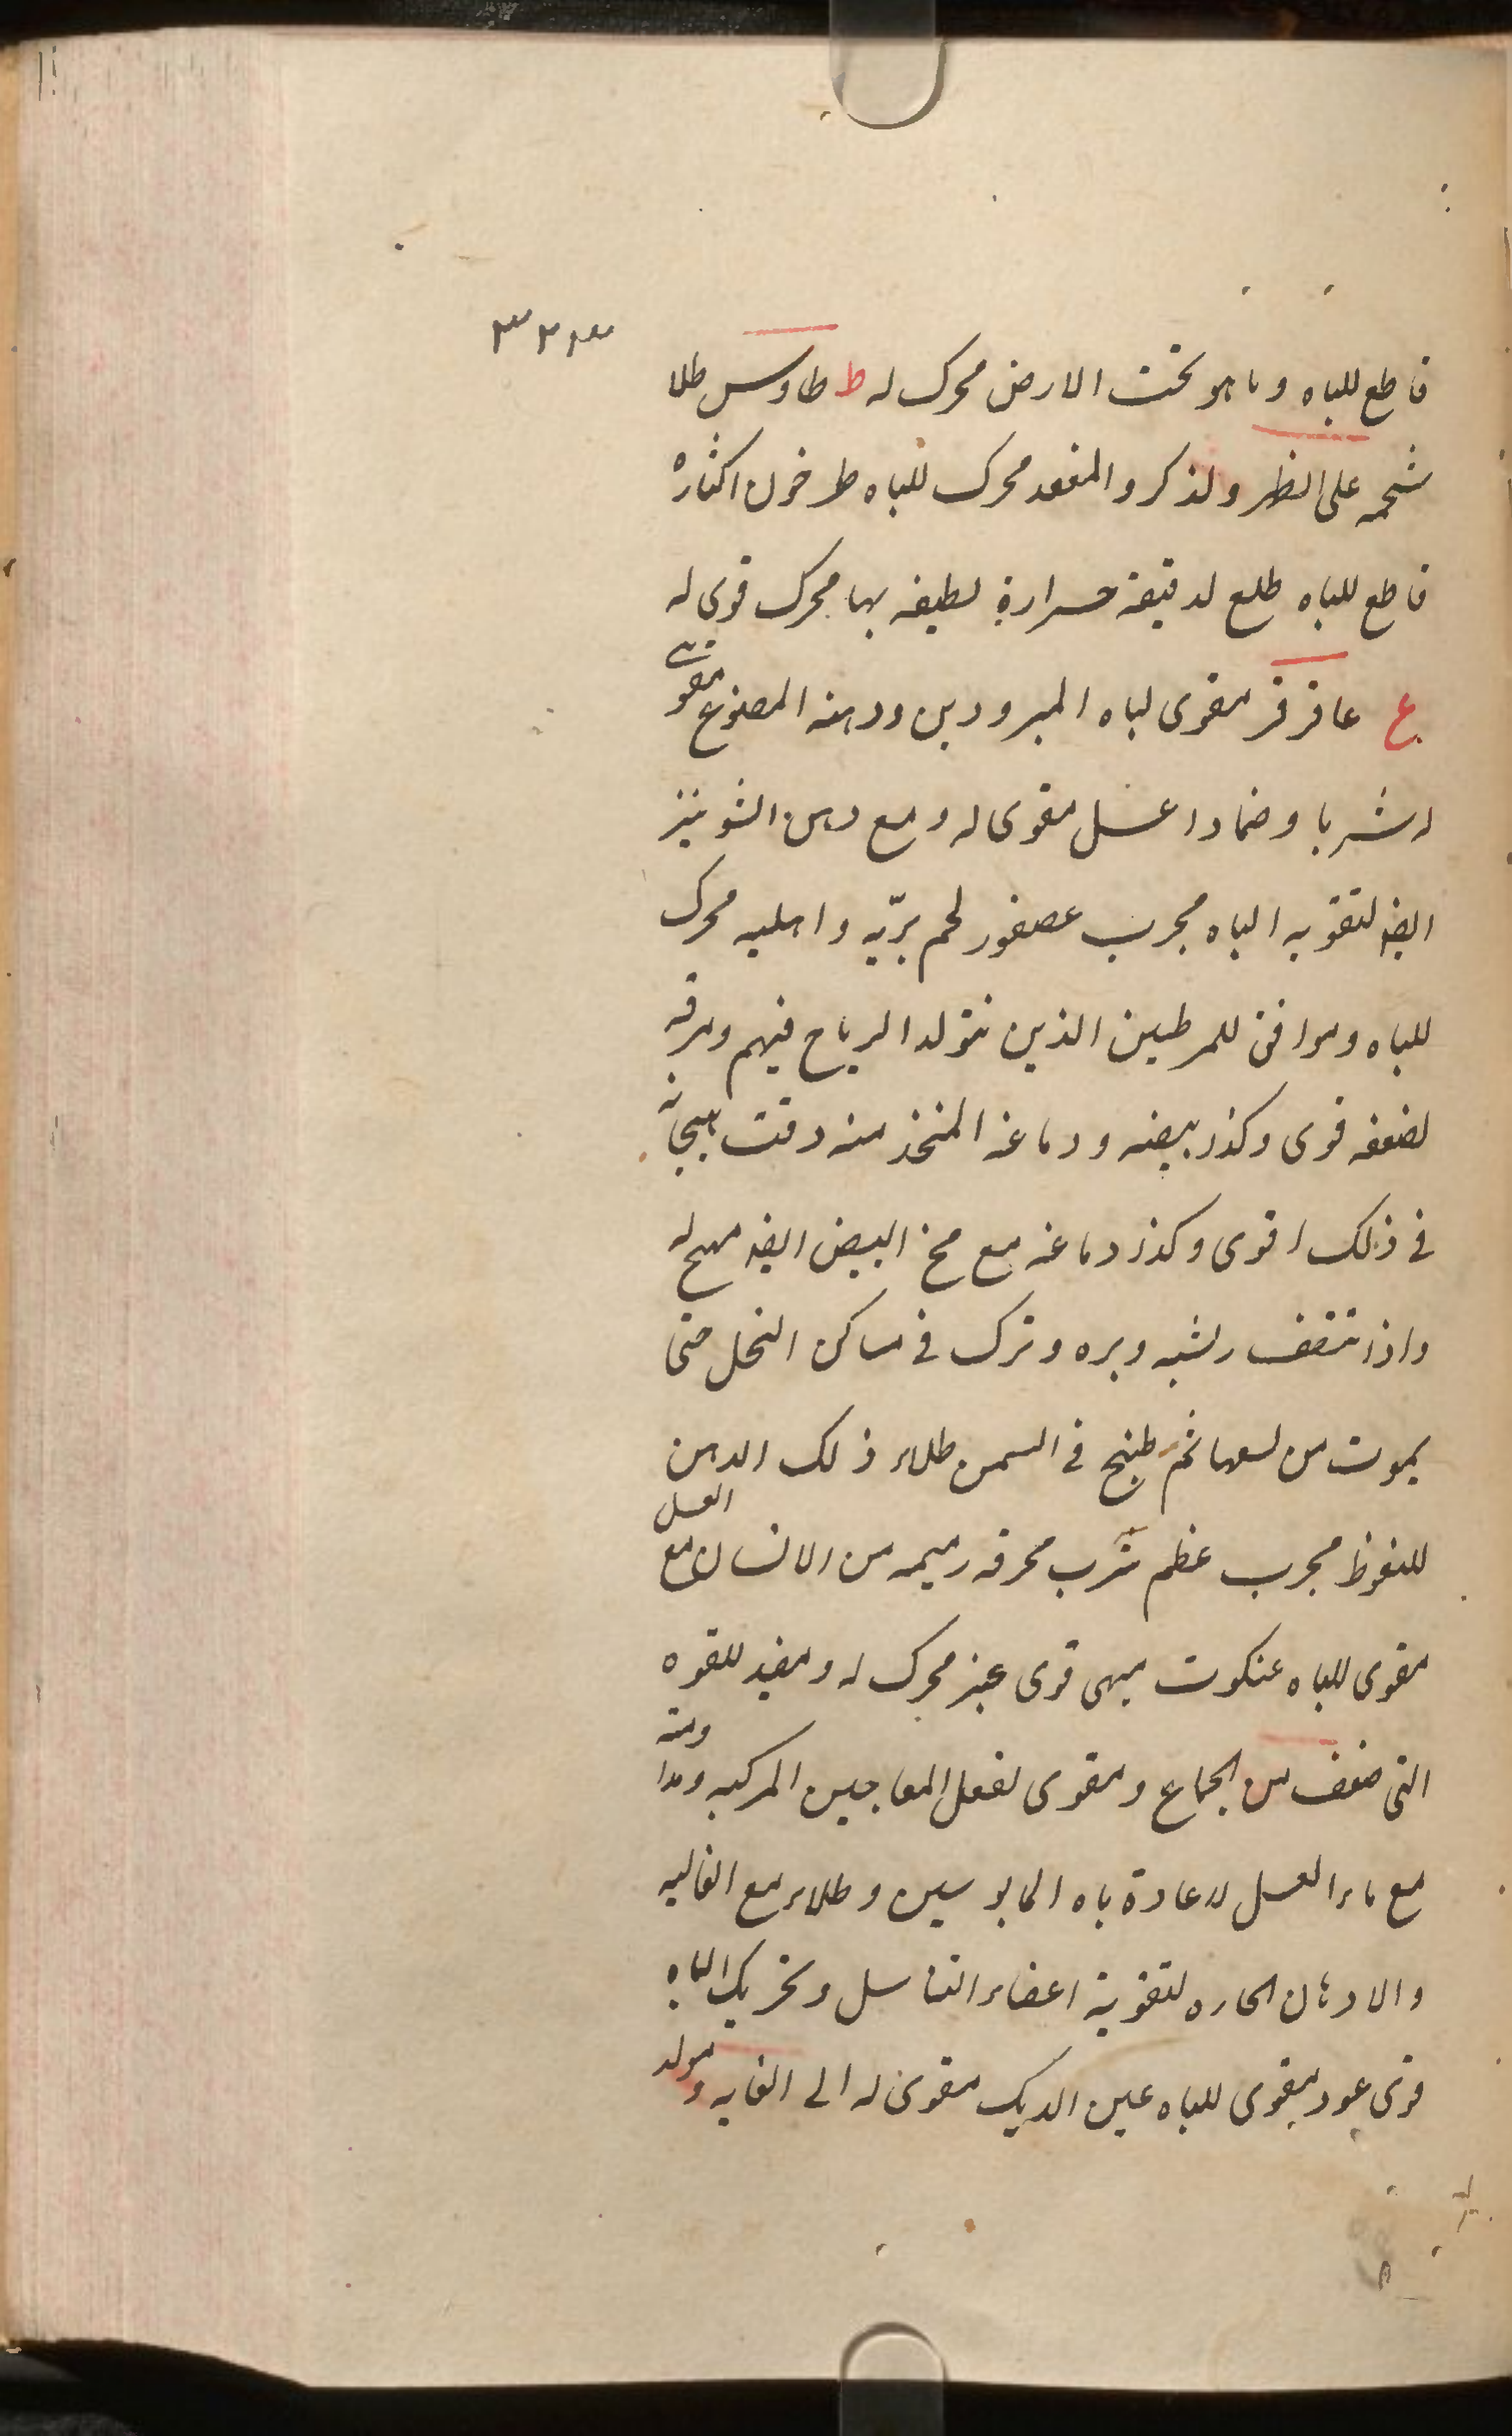 ٣٢٣
قاطع للباه وما هو تحت الارض محرك له ط طاوس طلا
شحمه على الظهر ولذكر والمقعد محرك للباه طرخون اكثاره
قاطع للباه طلع لدقيقه حرارة لطيفه بها محرك قوى له
ع عاقرقر مقوى لباه المبرودين ودهنه المصنوع مقوى
له شربا وضمادا عسل مقوى له ومع دهن الشونيز
ايضا لتقويه الباه مجرب عصفور لحم بريّه واهليه محرك
للباه وموافق للمرطبين الذين تتولد الرياح فيهم ومرقه
لضعفه قوى وكذر بيضه ودماغه المتخذ منه وقت هيجانه
فى ذلك اقوى وكذر دماغه مع مخ البيض ايضا مهيج له
واذا نتف ريشه وبره وترك فى مساكن النحل حتى
يموت من لسعها ثم طبخ فى السمن طلاء ذلك الدهن
للنعوظ مجرب عظم شرب محرقه رميمه من الانسان مع العسل
مقوى للباه عنكبوت مبهى قوى عنبر محرك له ومفيد للقوه
التى ضعف من الجماع ومقوى لفعل المعاجين المركبه ومنه
مع ماء العسل لاعادة باه المايوسين وطلاء مع الغاليه
والادهان الحاره لتقوية اعضاء التناسل وتحريك الباه
قوى عود مقوى للباه عين الديك مقوى له الى الغايه ومولد